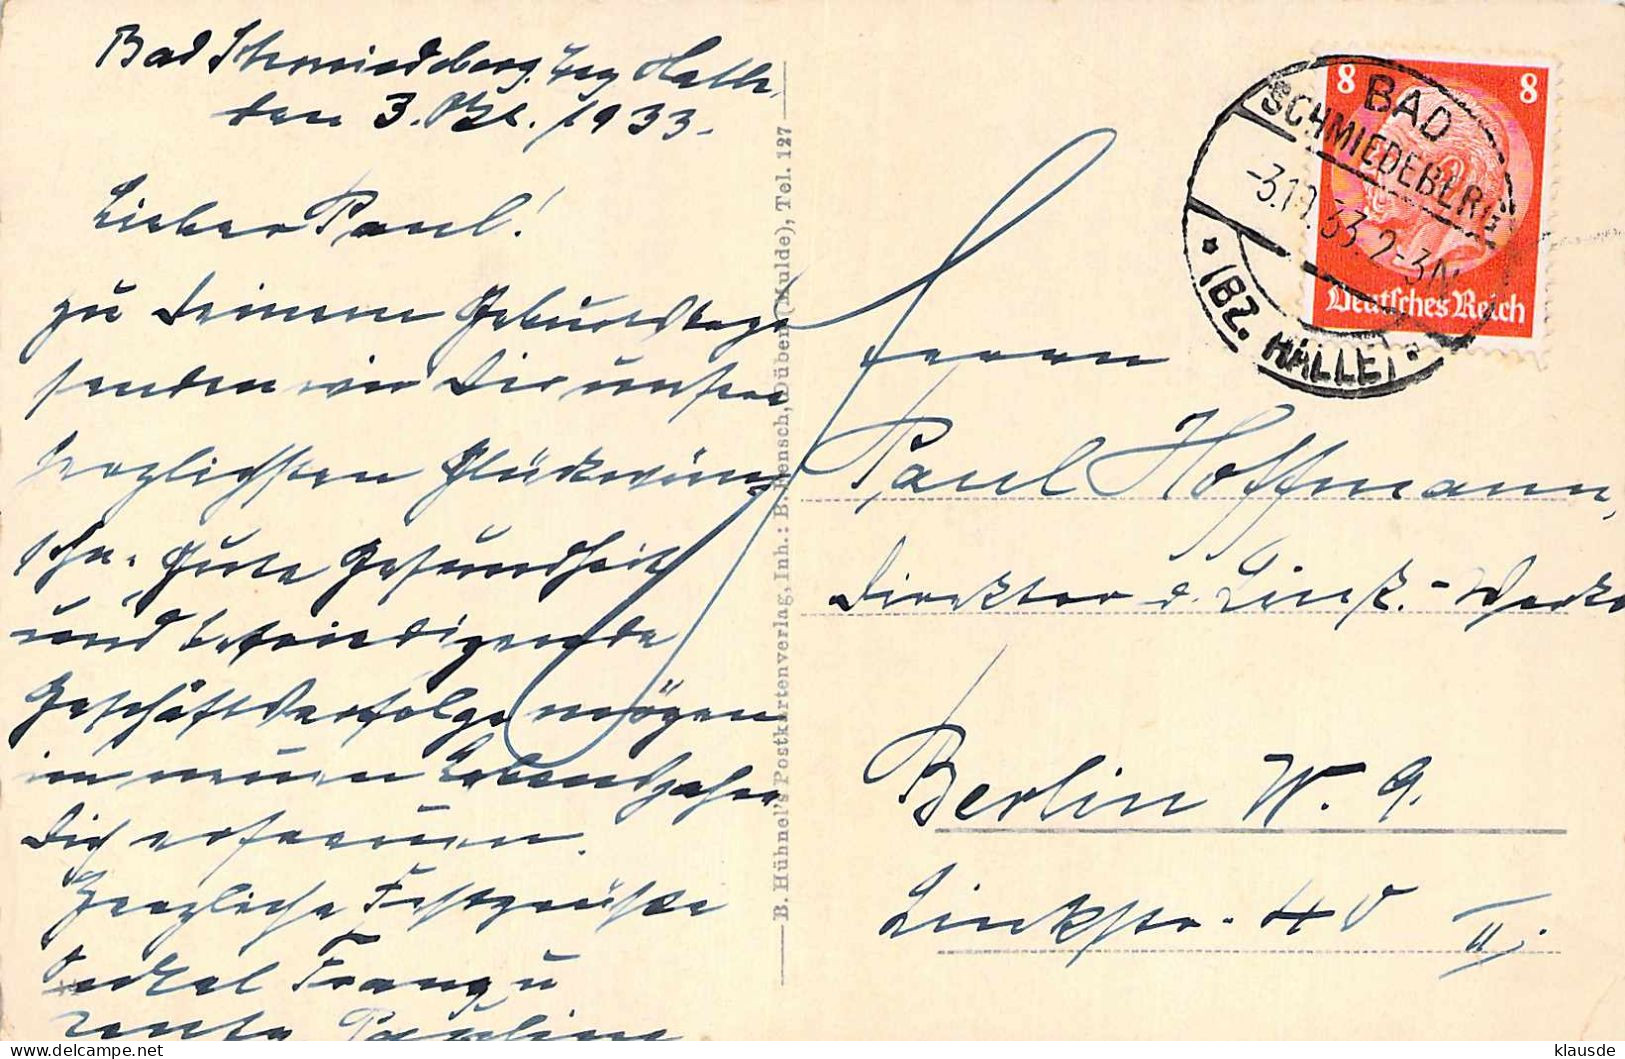 Bad Schmiedeberg, Bez Halle,
den 3. Okt. 1933.
Lieber Paul!
zu Deinem Geburtstage
senden wir Dir unsere
herzlichsten Glückwün-
sche. Gute Gesundheit
und befriedigende
Geschäftserfolge mögen
im neuen Lebensjahre
Dich erfreuen.
Herzliche Festgrüße
Onkel Franz u
Tante Pauline
B. Hühnel's Postkartenverlag, Inh.: B. Jensch, Düben (Mulde), Tel. 127
8 8
Deutsches Reich
BAD
SCHMIEDEBERG
-3.10.33. 2-3N
* (BZ. HALLE) *
Herrn
Paul Hoffmann,
Direktor d. Werke
Berlin W. 9.
Linkstr. 40 II.
klausde